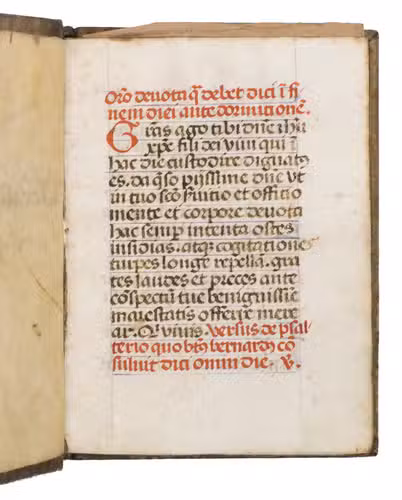 Orō deuota q̄ debet dici ī fi
nem diei ante dormitionē.
Gr̄as ago tibi dn̄e ih̄u
xp̄e fili dei viui qui ī
hac die custodire dignatꝰ
es. da q̄so pijssime dn̄e vt
in tuo scō seruitio et offitio
mente et corpore deuota
hac semp intenta ostes
insidias. atq̨ cogitationes
turpes longe repellā. gra
tes laudes et preces ante
cōspectū tue benignissīe
maiestatis offerre mere
ar. Q̄ viuis. Versus de psal
terio quo btūs bernardꝰ cō
suluit dici omni die. ℣.